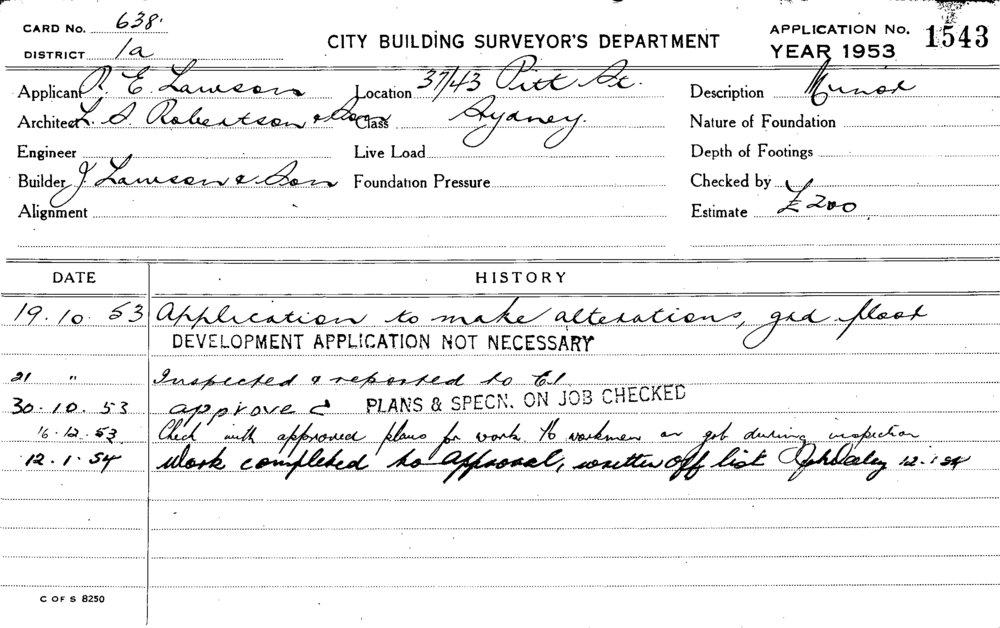 CARD No. 638.
DISTRICT 1a
CITY BUILDING SURVEYOR'S DEPARTMENT
APPLICATION No. 1543
YEAR 1953
Applicant R. E. Lawson Location 37/43 Pitt St. Description Minor
Architect L. S. Robertson & Son Class Sydney. Nature of Foundation
Engineer Live Load Depth of Footings
Builder J Lawson & Son Foundation Pressure Checked by
Alignment Estimate £200
DATE HISTORY
19.10.53 Application to make alterations, grd floor
DEVELOPMENT APPLICATION NOT NECESSARY
21 " Inspected & reported to
30.10.53 approved PLANS & SPECN. ON JOB CHECKED
16.12.53 Check with approved plans for work 16 workmen on job during inspection
12.1.54 Work completed to approval, written off list 12.1.54
C OF S 8250